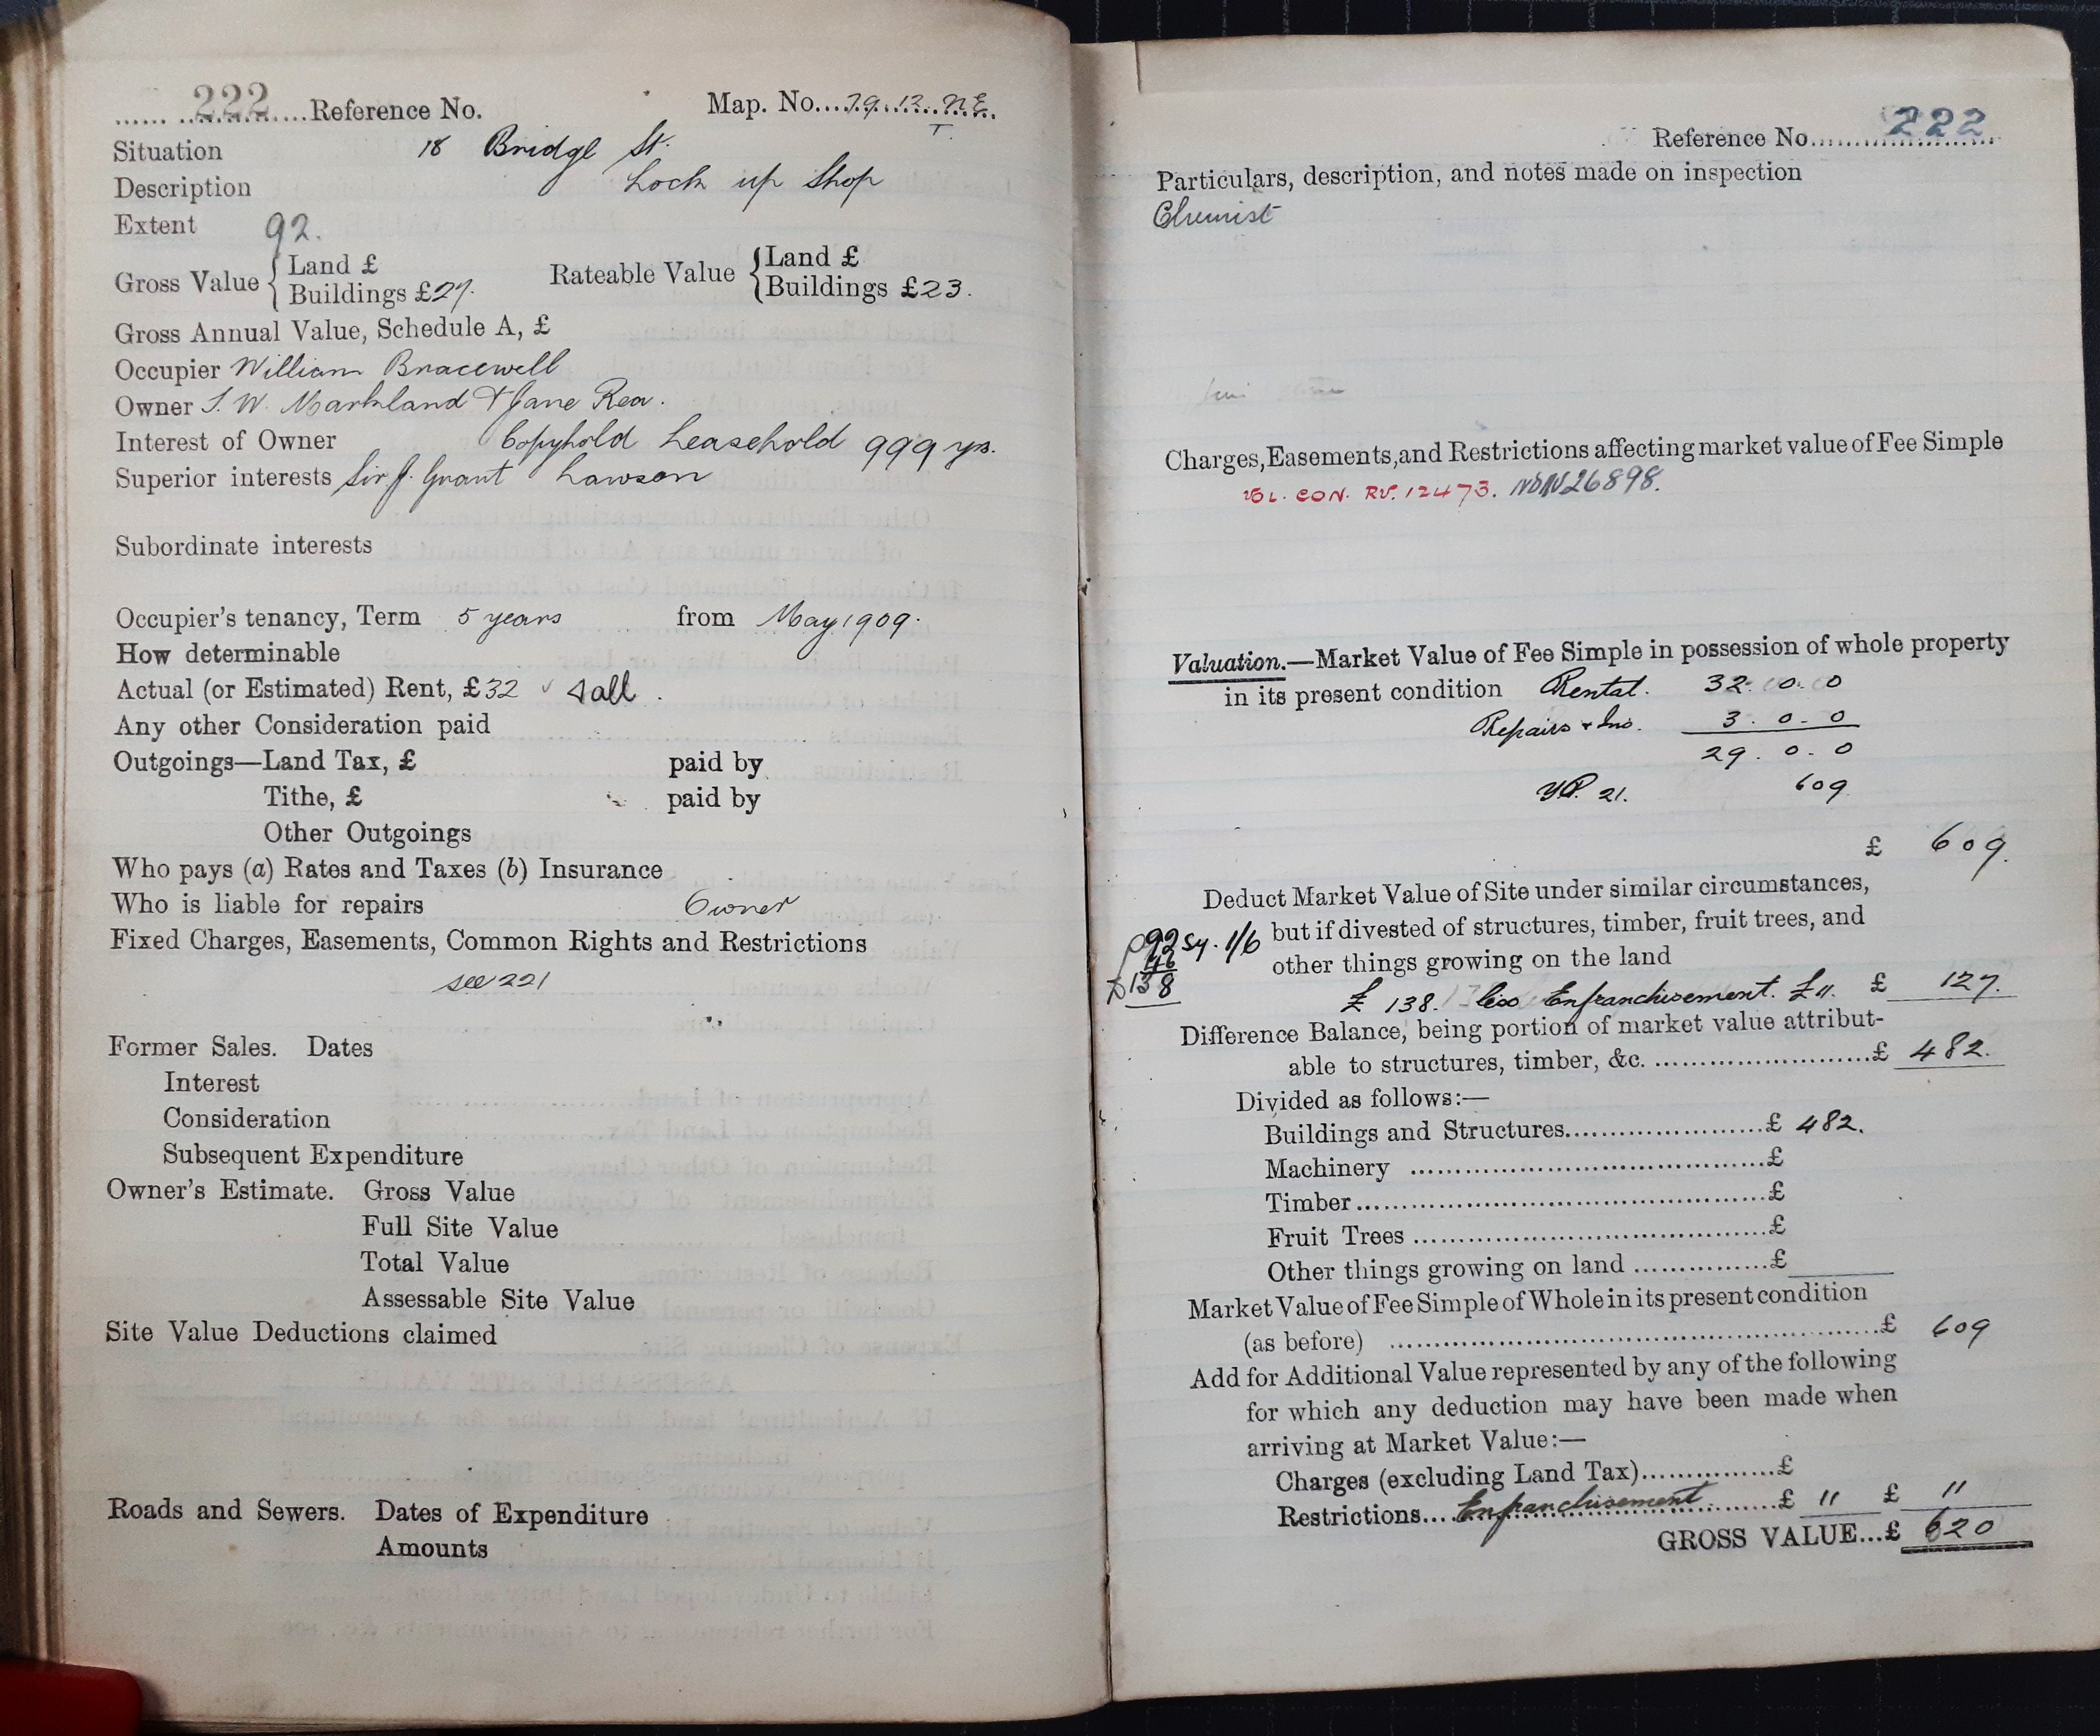 222 Reference No. Map. No. 79.12. N.E.
T.
Situation 18 Bridge St.
Description Lock up Shop
Extent 92.
Gross Value { Land £ Rateable Value { Land £
Buildings £27. Buildings £23.
Gross Annual Value, Schedule A, £
Occupier William Bracewell
Owner S. W. Markland & Jane Rea.
Interest of Owner Copyhold Leasehold 999 yrs.
Superior interests Sir J. Grant Lawson
Subordinate interests
Occupier's tenancy, Term 5 years from May 1909.
How determinable
Actual (or Estimated) Rent, £32 ✓ 4all.
Any other Consideration paid
Outgoings—Land Tax, £ paid by
Tithe, £ paid by
Other Outgoings
Who pays (a) Rates and Taxes (b) Insurance
Who is liable for repairs Owner
Fixed Charges, Easements, Common Rights and Restrictions
see 221
Former Sales. Dates
Interest
Consideration
Subsequent Expenditure
Owner's Estimate. Gross Value
Full Site Value
Total Value
Assessable Site Value
Site Value Deductions claimed
Roads and Sewers. Dates of Expenditure
Amounts
Reference No. 222
Particulars, description, and notes made on inspection
Chemist
Charges, Easements, and Restrictions affecting market value of Fee Simple
VOL. CON. RV. 12473. 26898.
Valuation.—Market Value of Fee Simple in possession of whole property
in its present condition Rental. 32. 0. 0
Repairs & Ins. 3. 0. 0
29. 0. 0
YP. 21. 609
£ 609.
Deduct Market Value of Site under similar circumstances,
92 sy. 1/6 but if divested of structures, timber, fruit trees, and
46 other things growing on the land
138 £ 138. less Enfranchisement. £11. £ 127.
Difference Balance, being portion of market value attribut-
able to structures, timber, &c. £ 482.
Divided as follows:—
Buildings and Structures £ 482.
Machinery £
Timber £
Fruit Trees £
Other things growing on land £
Market Value of Fee Simple of Whole in its present condition
(as before) £ 609
Add for Additional Value represented by any of the following
for which any deduction may have been made when
arriving at Market Value:—
Charges (excluding Land Tax) £
Restrictions Enfranchisement £ 11 £ 11
GROSS VALUE...£ 620